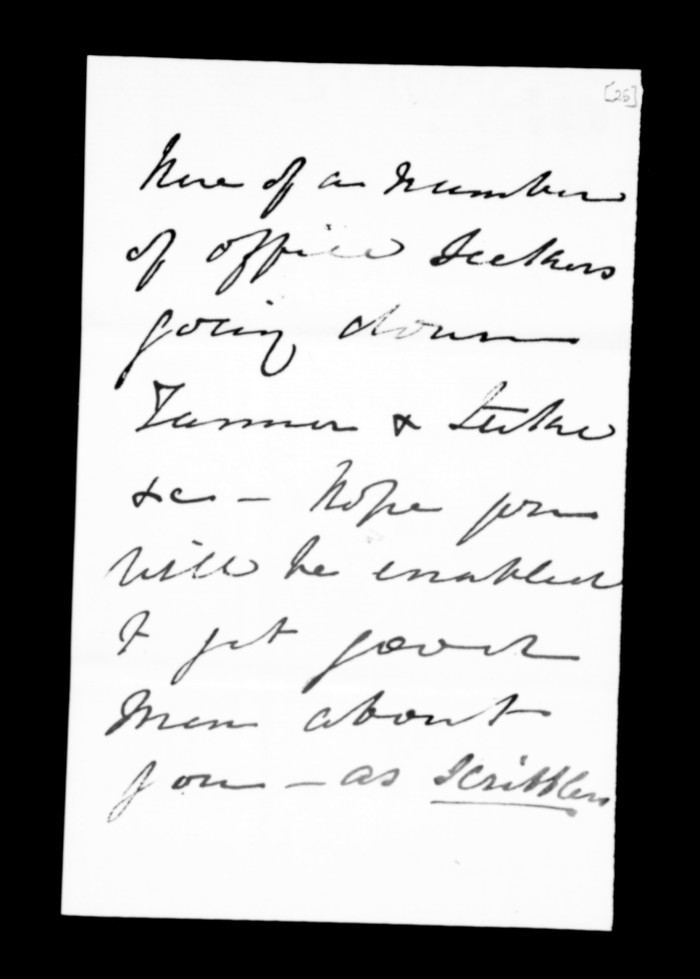 [26]
here of a number
of office Seekers
going down
Tanner &
&c – hope you
will be enabled
to get good
men about
you – as Scribblers